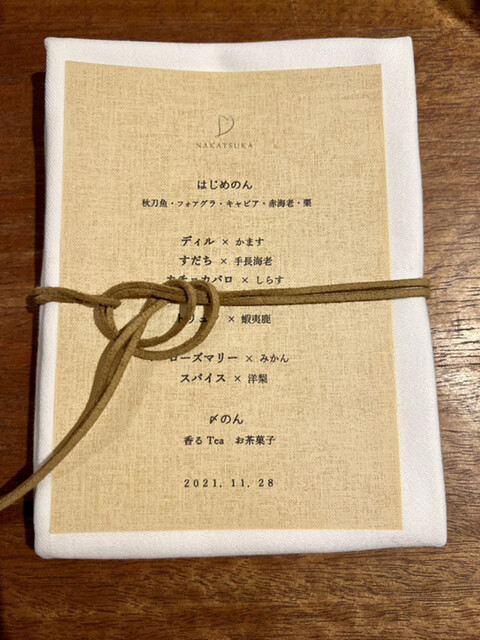 NAKATSUKA
はじめのん
秋刀魚・フォアグラ・キャビア・赤海老・栗
ディル × かます
すだち × 手長海老
カチョカバロ × しらす
× 蝦夷鹿
ローズマリー × みかん
スパイス × 洋梨
〆のん
香るTea お茶菓子
2021. 11. 28